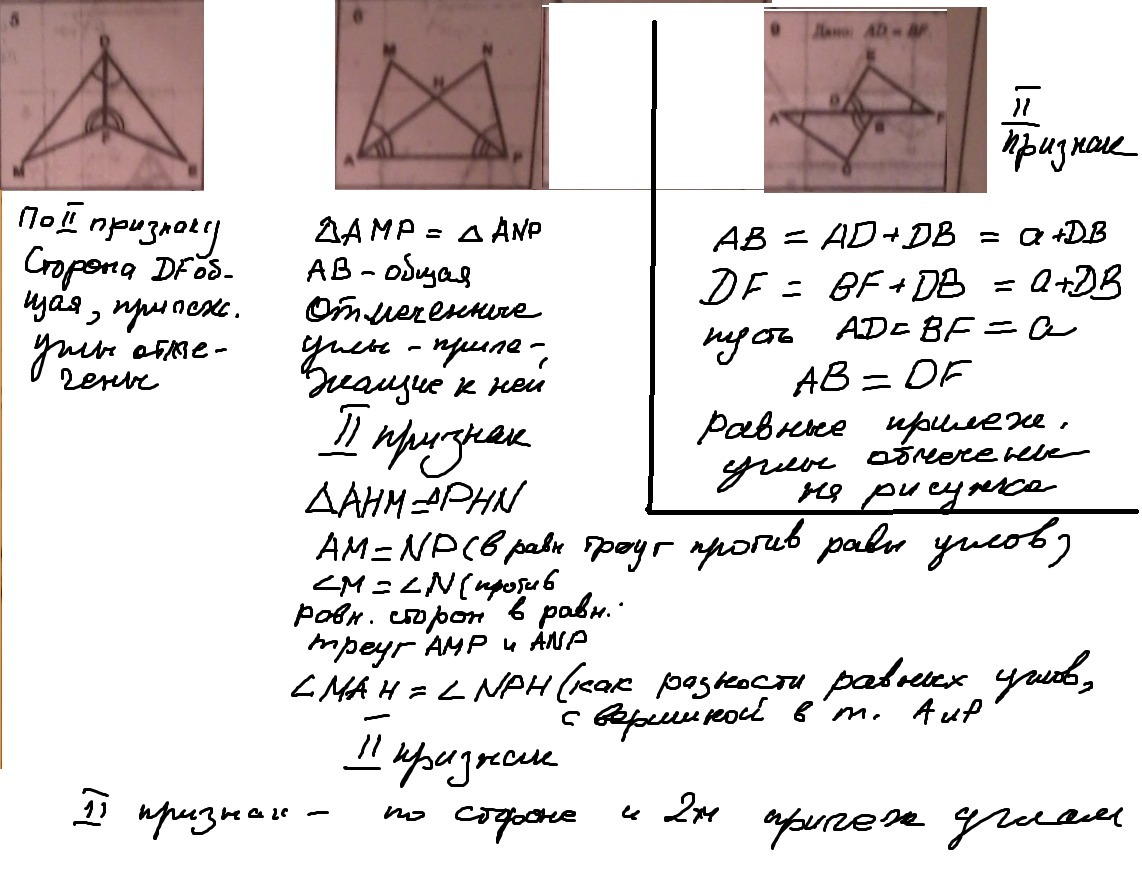 5
D
F
M
E
6
M
N
H
A
P
9 Дано: AD = BF.
E
D
A
B
F
II
признак
По II признаку
Сторона DF об-
щая, прилеж.
углы отме-
чены
△AMP = △ANP
AB - общая
Отмеченные
углы - приле-
жащие к ней
II признак
△AHM = △PHN
AM = NP (в равн треуг против равн углов)
∠M = ∠N (против
равн. сторон в равн.
треуг AMP и ANP
∠MAH = ∠NPH (как разности равных углов,
с вершиной в т. A и P
II признак
AB = AD + DB = a + DB
DF = BF + DB = a + DB
пусть AD = BF = a
AB = DF
Равные прилеж.
углы отмечены
на рисунке
II признак - по стороне и 2м прилеж углам